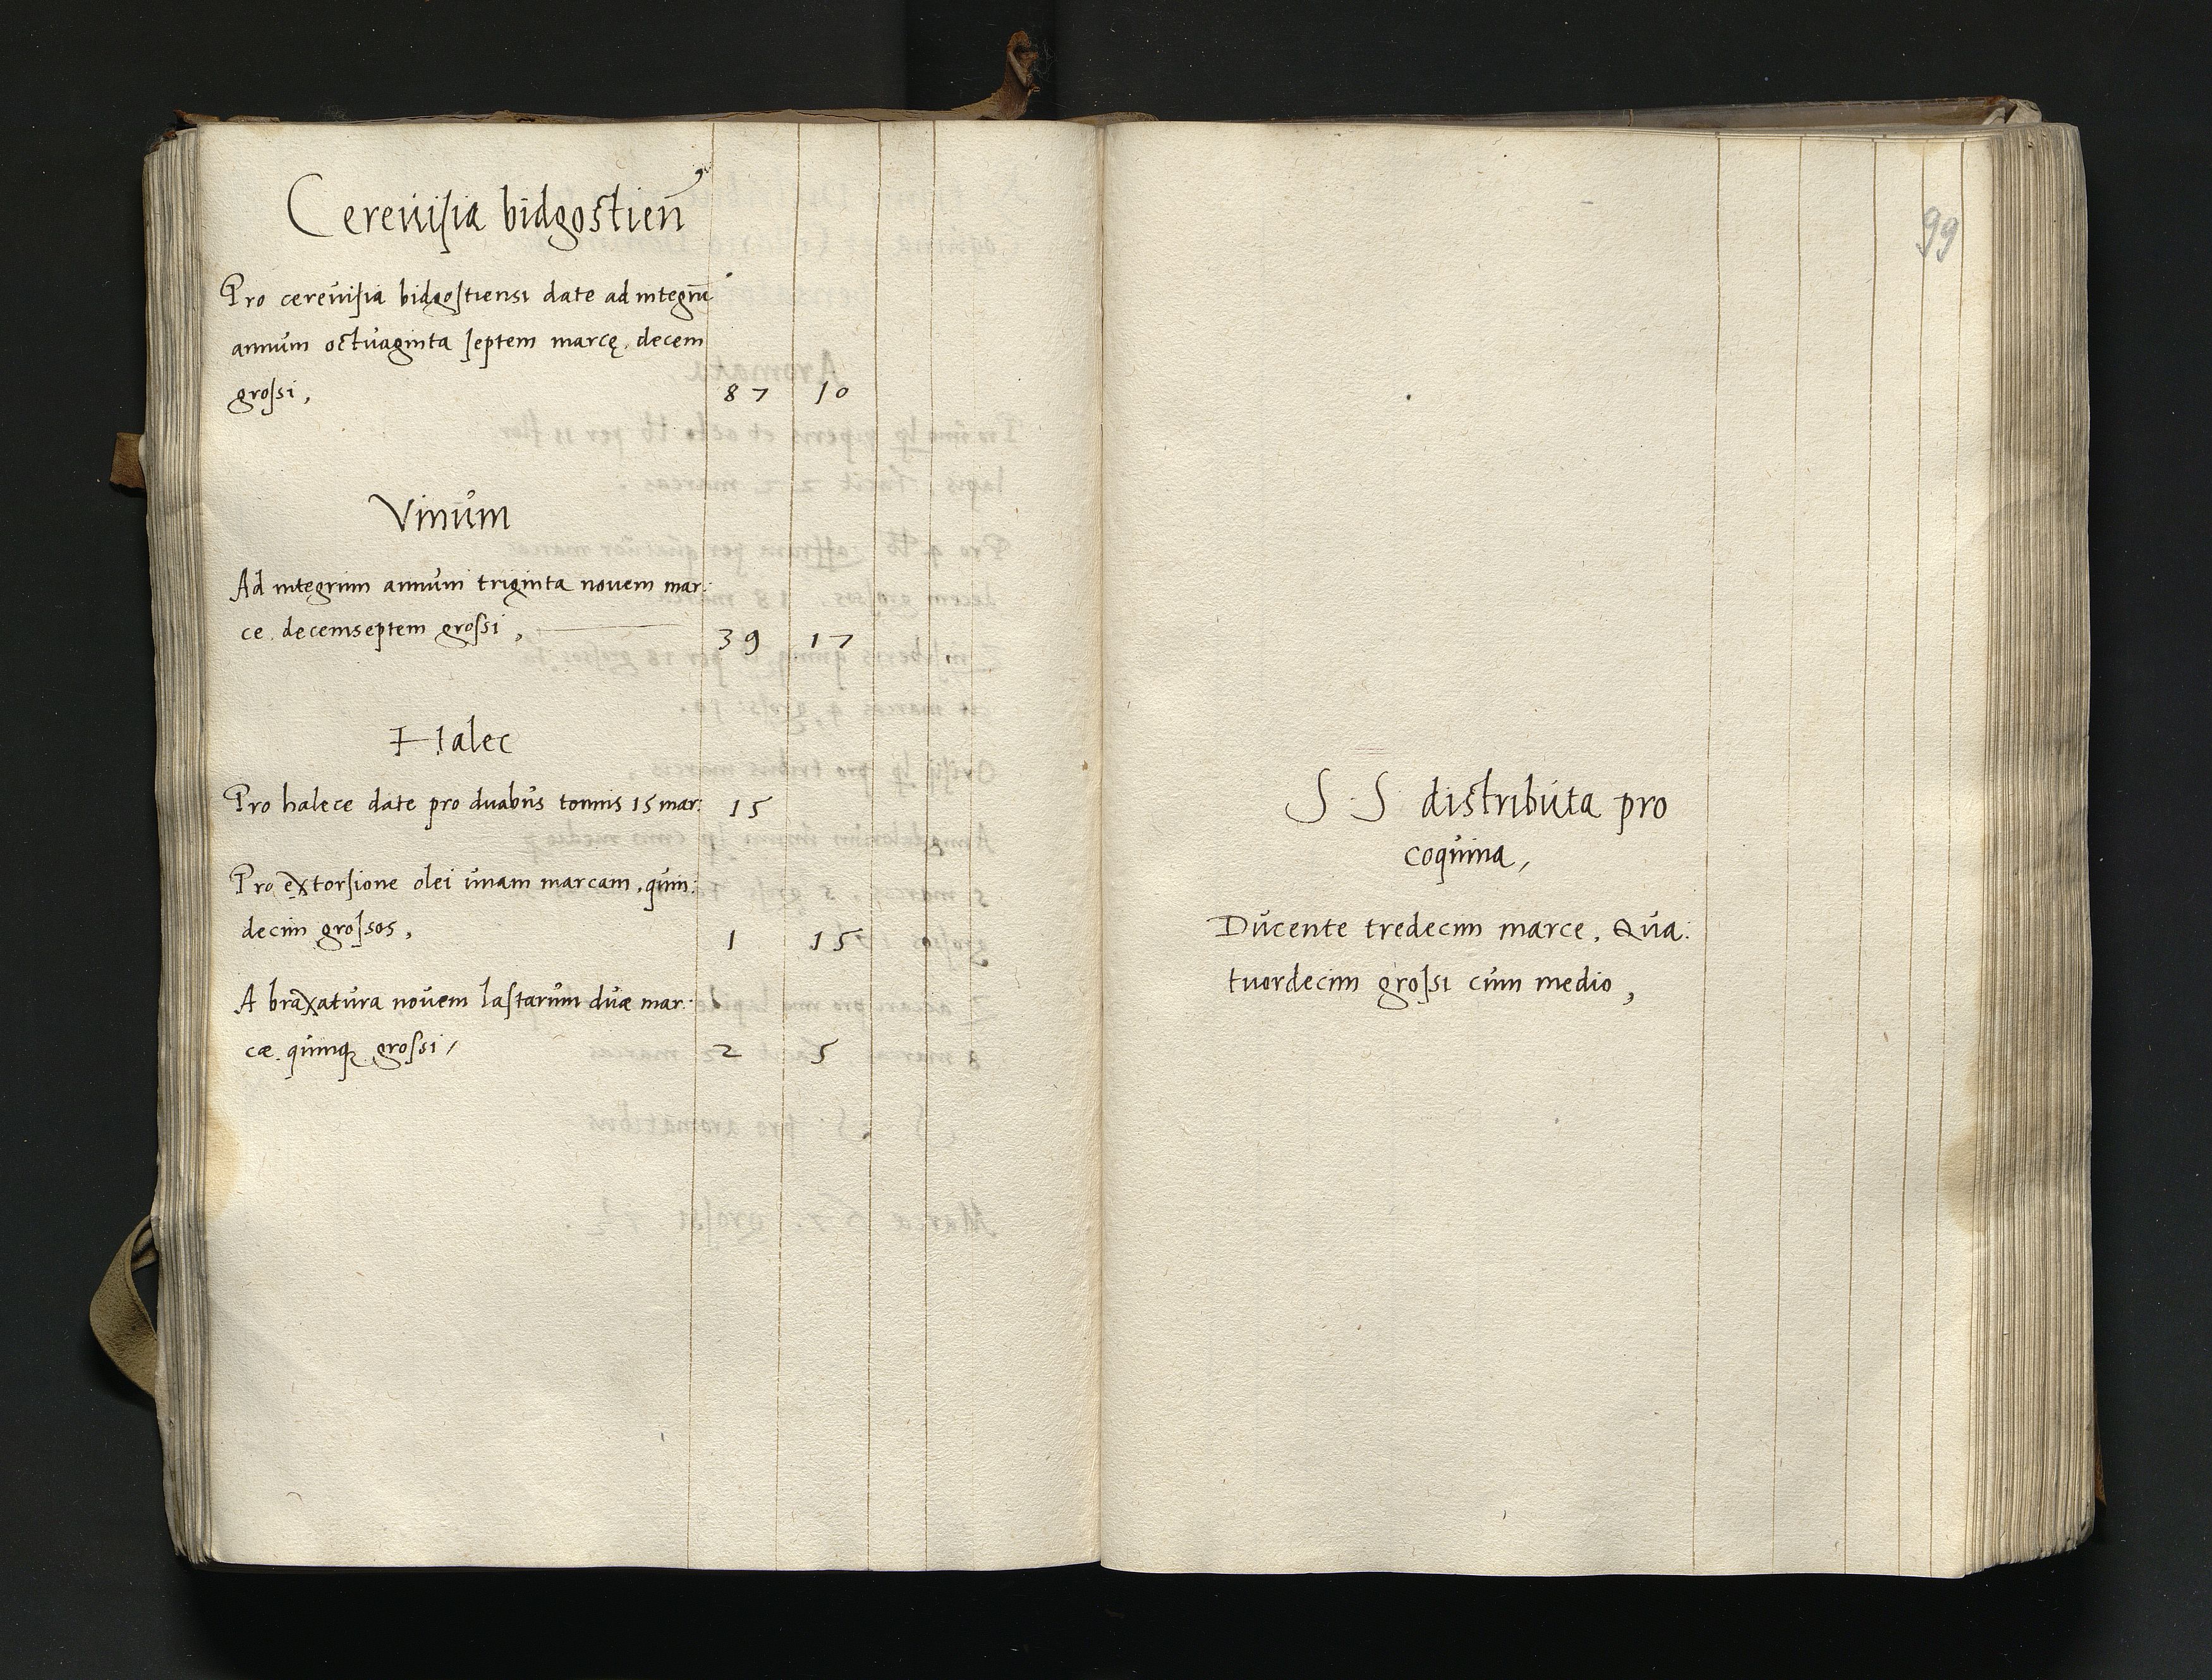 Cereuisia bidgostien̄
Pro cereuisia bidgostiensi date ad integrū
annum octuaginta septem marcę. decem
grossi, 87 10
Vinum
Ad integrum annum triginta nouem mar:
ce. decemseptem grossi, 39 17
Halec
Pro halece date pro duabus tonnis 15 mar: 15
Pro extorsione olei unam marcam, quin:
decim grossos, 1 15
A braxatura nouem lastarum duæ mar:
cæ. quinqꝫ grossi, 2 5
99
S S distributa pro
coquina,
Ducente tredecim marce. Qua:
tuordecim grossi cum medio,